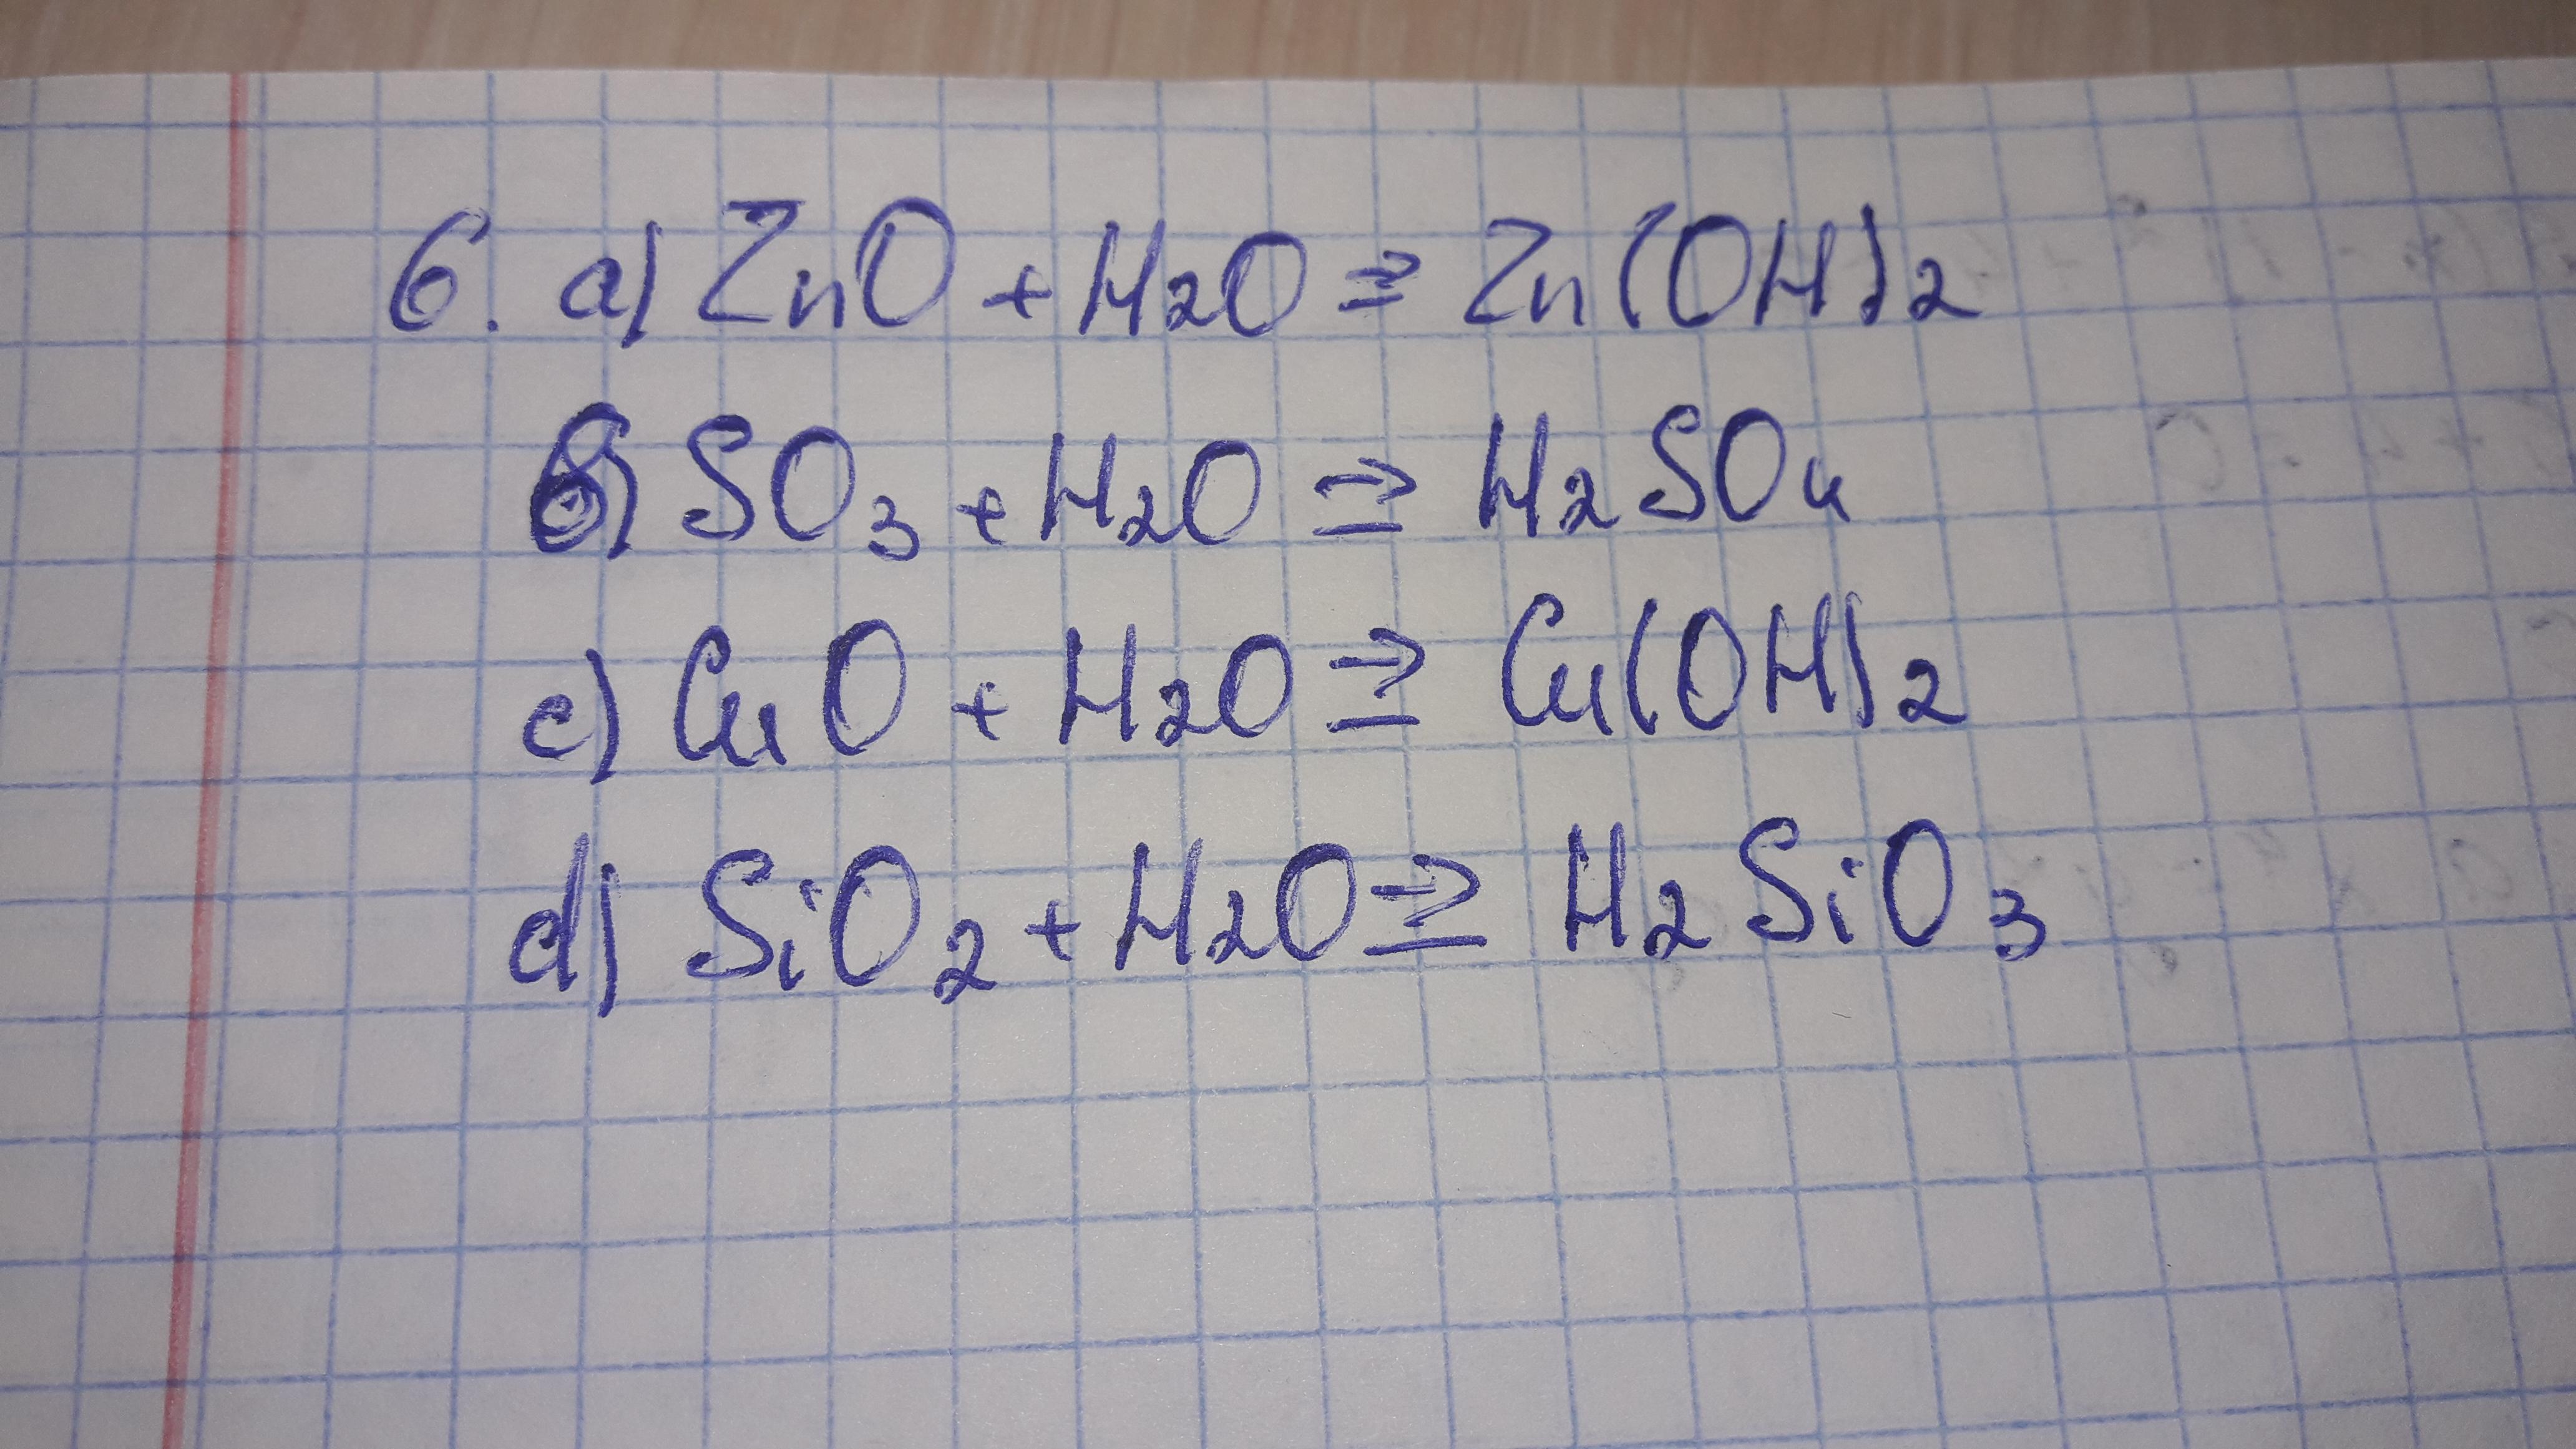 6. a) ZnO + H2O ⇒ Zn(OH)2
b) SO3 + H2O ⇒ H2SO4
c) CuO + H2O ⇒ Cu(OH)2
d) SiO2 + H2O ⇒ H2SiO3